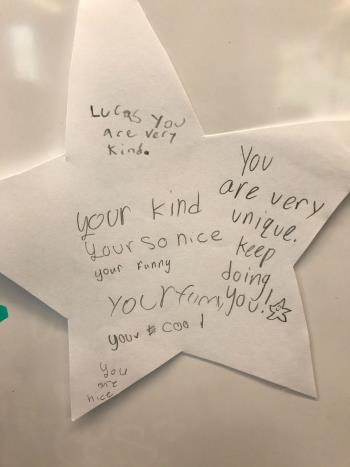 Lucas you
are very
kind.
You
are very
unique.
keep
doing
you!
your kind
your so nice
your funny
your funny
your cool
you
are
nice